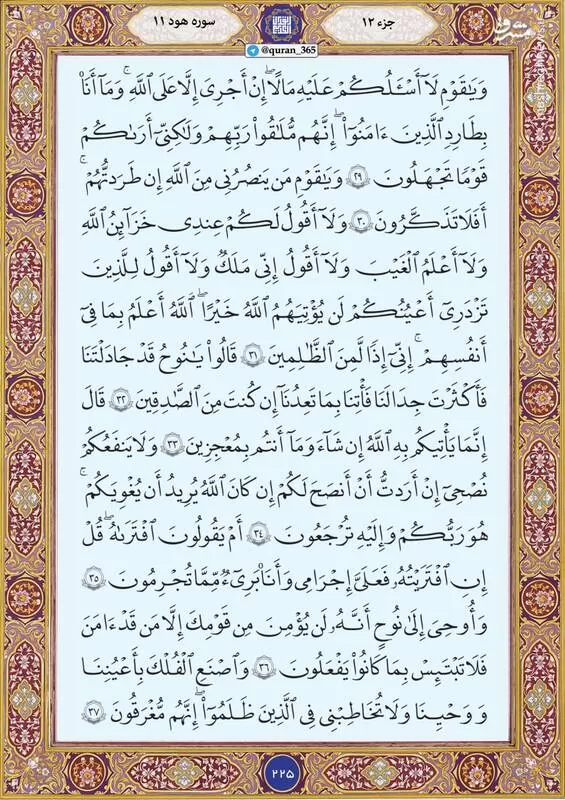 سوره هود ۱۱
جزء ۱۲
@quran_365
وَيَٰقَوْمِ لَآ أَسْـَٔلُكُمْ عَلَيْهِ مَالًا ۖ إِنْ أَجْرِىَ إِلَّا عَلَى ٱللَّهِ ۚ وَمَآ أَنَا۠
بِطَارِدِ ٱلَّذِينَ ءَامَنُوٓا۟ ۚ إِنَّهُم مُّلَٰقُوا۟ رَبِّهِمْ وَلَٰكِنِّىٓ أَرَىٰكُمْ
قَوْمًا تَجْهَلُونَ ﴿۲۹﴾ وَيَٰقَوْمِ مَن يَنصُرُنِى مِنَ ٱللَّهِ إِن طَرَدتُّهُمْ ۚ
أَفَلَا تَذَكَّرُونَ ﴿۳۰﴾ وَلَآ أَقُولُ لَكُمْ عِندِى خَزَآئِنُ ٱللَّهِ
وَلَآ أَعْلَمُ ٱلْغَيْبَ وَلَآ أَقُولُ إِنِّى مَلَكٌ وَلَآ أَقُولُ لِلَّذِينَ
تَزْدَرِىٓ أَعْيُنُكُمْ لَن يُؤْتِيَهُمُ ٱللَّهُ خَيْرًا ۖ ٱللَّهُ أَعْلَمُ بِمَا فِىٓ
أَنفُسِهِمْ ۖ إِنِّىٓ إِذًا لَّمِنَ ٱلظَّٰلِمِينَ ﴿۳۱﴾ قَالُوا۟ يَٰنُوحُ قَدْ جَٰدَلْتَنَا
فَأَكْثَرْتَ جِدَٰلَنَا فَأْتِنَا بِمَا تَعِدُنَآ إِن كُنتَ مِنَ ٱلصَّٰدِقِينَ ﴿۳۲﴾ قَالَ
إِنَّمَا يَأْتِيكُم بِهِ ٱللَّهُ إِن شَآءَ وَمَآ أَنتُم بِمُعْجِزِينَ ﴿۳۳﴾ وَلَا يَنفَعُكُمْ
نُصْحِىٓ إِنْ أَرَدتُّ أَنْ أَنصَحَ لَكُمْ إِن كَانَ ٱللَّهُ يُرِيدُ أَن يُغْوِيَكُمْ ۚ
هُوَ رَبُّكُمْ وَإِلَيْهِ تُرْجَعُونَ ﴿۳۴﴾ أَمْ يَقُولُونَ ٱفْتَرَىٰهُ ۖ قُلْ
إِنِ ٱفْتَرَيْتُهُۥ فَعَلَىَّ إِجْرَامِى وَأَنَا۠ بَرِىٓءٌ مِّمَّا تُجْرِمُونَ ﴿۳۵﴾
وَأُوحِىَ إِلَىٰ نُوحٍ أَنَّهُۥ لَن يُؤْمِنَ مِن قَوْمِكَ إِلَّا مَن قَدْ ءَامَنَ
فَلَا تَبْتَئِسْ بِمَا كَانُوا۟ يَفْعَلُونَ ﴿۳۶﴾ وَٱصْنَعِ ٱلْفُلْكَ بِأَعْيُنِنَا
وَوَحْيِنَا وَلَا تُخَٰطِبْنِى فِى ٱلَّذِينَ ظَلَمُوٓا۟ ۚ إِنَّهُم مُّغْرَقُونَ ﴿۳۷﴾
۲۲۵